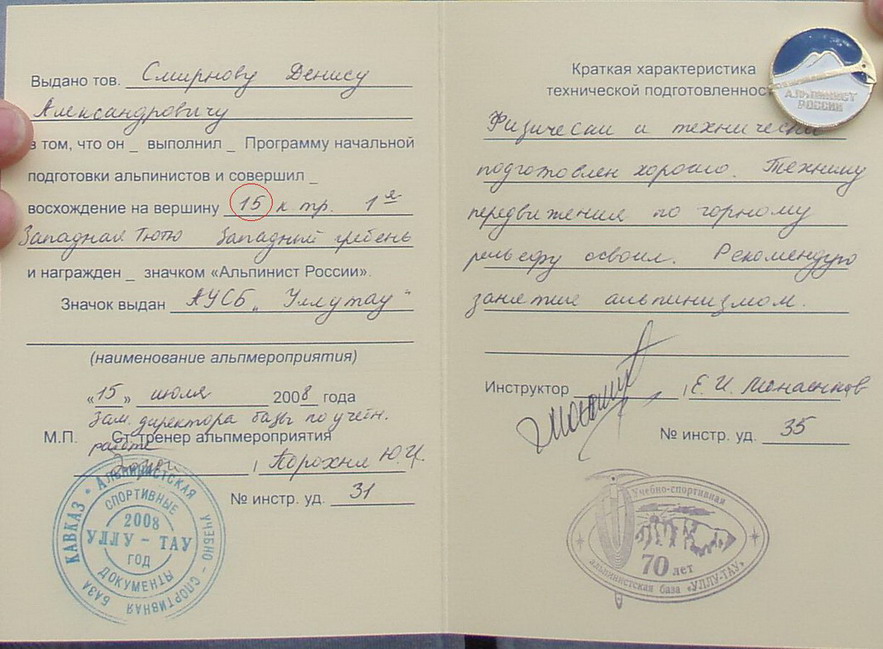 Выдано тов. Смирнову Денису
Александровичу
в том, что он _ выполнил _ Программу начальной
подготовки альпинистов и совершил _
восхождение на вершину 15 к тр. 1 я
Западная Тютю Западный гребень
и награжден _ значком «Альпинист России».
Значок выдан АУСБ „Уллутау"
(наименование альпмероприятия)
«15» июля 2008 года
Зам. директора базы по учебн.
работе
М.П. Ст. тренер альпмероприятия
, Порохня Ю.И.
№ инстр. уд. 31
КАВКАЗ * АЛЬПИНИСТСКАЯ УЧЕБНО - СПОРТИВНАЯ БАЗА
СПОРТИВНЫЕ
2008
УЛЛУ - ТАУ
ГОД
ДОКУМЕНТЫ
Краткая характеристика
технической подготовленност
АЛЬПИНИСТ
РОССИИ
Физически и технически
подготовлен хорошо. Технику
передвижения по горному
рельефу освоил. Рекомендую
занятие альпинизмом.
Инструктор , Е.И. Монаенков
№ инстр. уд. 35
Учебно-спортивная
70 лет
альпинистская база «УЛЛУ-ТАУ»